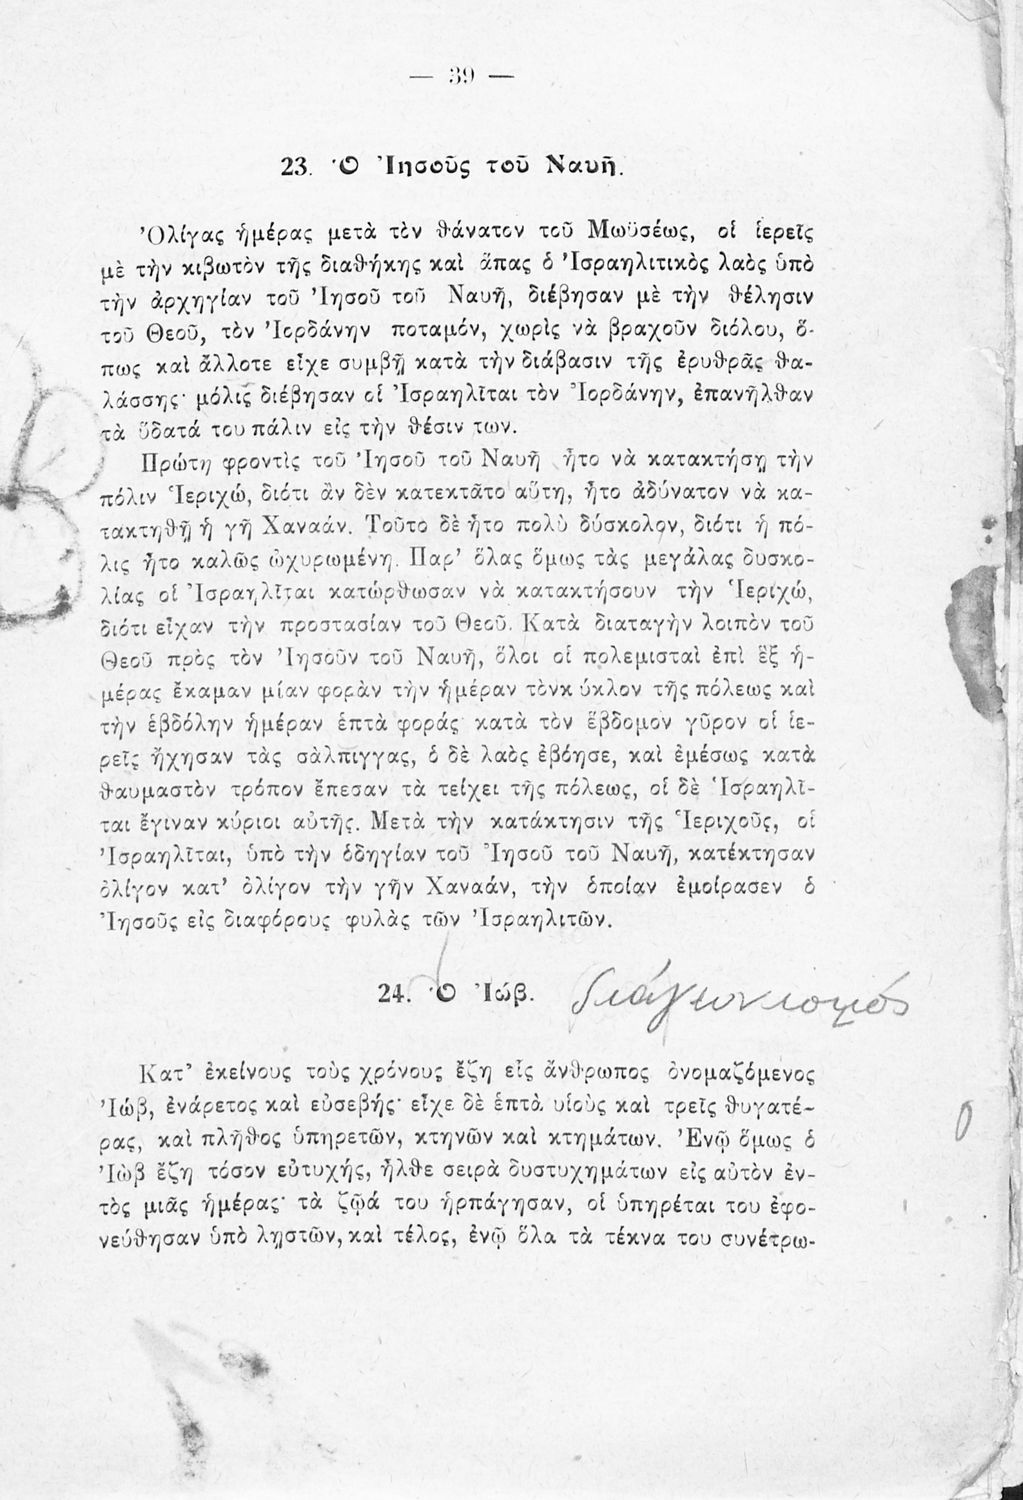 — 39 —
23. Ὁ Ἰησοῦς τοῦ Ναυῆ.
Ὀλίγας ἡμέρας μετὰ τὸν θάνατον τοῦ Μωϋσέως, οἱ ἱερεῖς
μὲ τὴν κιβωτὸν τῆς διαθήκης καὶ ἅπας ὁ Ἰσραηλιτικὸς λαὸς ὑπὸ
τὴν ἀρχηγίαν τοῦ Ἰησοῦ τοῦ Ναυῆ, διέβησαν μὲ τὴν θέλησιν
τοῦ Θεοῦ, τὸν Ἰορδάνην ποταμόν, χωρὶς νὰ βραχοῦν διόλου, ὅ-
πως καὶ ἄλλοτε εἶχε συμβῇ κατὰ τὴν διάβασιν τῆς ἐρυθρᾶς θα-
λάσσης· μόλις διέβησαν οἱ Ἰσραηλῖται τὸν Ἰορδάνην, ἐπανῆλθαν
τὰ ὕδατά του πάλιν εἰς τὴν θέσιν των.
Πρώτη φροντὶς τοῦ Ἰησοῦ τοῦ Ναυῆ ἦτο νὰ κατακτήσῃ τὴν
πόλιν Ἱεριχώ, διότι ἂν δὲν κατεκτᾶτο αὕτη, ἦτο ἀδύνατον νὰ κα-
τακτηθῇ ἡ γῆ Χαναάν. Τοῦτο δὲ ἦτο πολὺ δύσκολον, διότι ἡ πό-
λις ἦτο καλῶς ὠχυρωμένη. Παρ' ὅλας ὅμως τὰς μεγάλας δυσκο-
λίας οἱ Ἰσραηλῖται κατώρθωσαν νὰ κατακτήσουν τὴν Ἱεριχώ,
διότι εἶχαν τὴν προστασίαν τοῦ Θεοῦ. Κατὰ διαταγὴν λοιπὸν τοῦ
Θεοῦ πρὸς τὸν Ἰησοῦν τοῦ Ναυῆ, ὅλοι οἱ πολεμισταὶ ἐπὶ ἓξ ἡ-
μέρας ἔκαμαν μίαν φορὰν τὴν ἡμέραν τὸνκ ύκλον τῆς πόλεως καὶ
τὴν ἑβδόλην ἡμέραν ἑπτὰ φοράς· κατὰ τὸν ἕβδομον γῦρον οἱ ἱε-
ρεῖς ἤχησαν τὰς σὰλπιγγας, ὁ δὲ λαὸς ἐβόησε, καὶ ἐμέσως κατὰ
θαυμαστὸν τρόπον ἔπεσαν τὰ τείχει τῆς πόλεως, οἱ δὲ Ἰσραηλῖ-
ται ἔγιναν κύριοι αὐτῆς. Μετὰ τὴν κατάκτησιν τῆς Ἱεριχοῦς, οἱ
Ἰσραηλῖται, ὑπὸ τὴν ὁδηγίαν τοῦ Ἰησοῦ τοῦ Ναυῆ, κατέκτησαν
ὀλίγον κατ' ὀλίγον τὴν γῆν Χαναάν, τὴν ὁποίαν ἐμοίρασεν ὁ
Ἰησοῦς εἰς διαφόρους φυλὰς τῶν Ἰσραηλιτῶν.
24. Ὁ Ἰώβ. διάγωνισμός
Κατ' ἐκείνους τοὺς χρόνους ἔζη εἷς ἄνθρωπος ὀνομαζόμενος
Ἰώβ, ἐνάρετος καὶ εὐσεβής· εἶχε δὲ ἑπτὰ υἱοὺς καὶ τρεῖς θυγατέ-
ρας, καὶ πλῆθος ὑπηρετῶν, κτηνῶν καὶ κτημάτων. Ἐνῷ ὅμως ὁ
Ἰὼβ ἔζη τόσον εὐτυχής, ἦλθε σειρὰ δυστυχημάτων εἰς αὐτὸν ἐν-
τὸς μιᾶς ἡμέρας· τὰ ζῷά του ἡρπάγησαν, οἱ ὑπηρέται του ἐφο-
νεύθησαν ὑπὸ λῃστῶν, καὶ τέλος, ἐνῷ ὅλα τὰ τέκνα του συνέτρω-